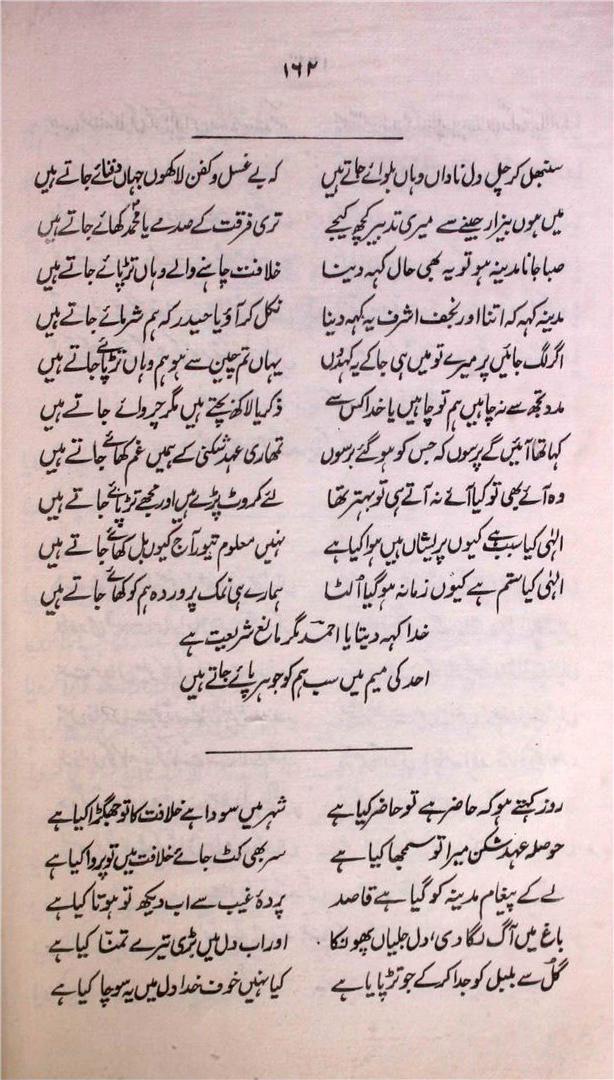 ۱۶۲
سنبھل کر چل دل ناداں وہاں بلوائے جاتے ہیں کہ بے غسل و کفن لاکھوں جہاں دفنائے جاتے ہیں
میں ہوں بیزار جینے سے میری تدبیر کچھ کیجے تری فرقت کے صدمے یا محمدؐ کھائے جاتے ہیں
صبا جانا مدینہ ہو تو یہ بھی حال کہہ دینا خلافت چاہنے والے وہاں تڑپائے جاتے ہیں
مدینہ کہہ کہ اتنا اور نجف اشرف یہ کہہ دینا نکل کر آؤ یا حیدر کہ ہم شرمائے جاتے ہیں
اگر لگ جائیں پر میرے تو میں ہی جا کے یہ کہدوں یہاں تم چین سے ہو ہم وہاں تڑپائے جاتے ہیں
مدد تجھ سے نہ چاہیں ہم تو چاہیں یا خدا کس سے ذکریا لاکھ بچتے ہیں مگر چروائے جاتے ہیں
کہا تھا آئیں گے پرسوں کہ جس کو ہو گئے برسوں تمھاری عہد شکنی کے ہمیں غم کھائے جاتے ہیں
وہ آئے بھی تو کیا آئے نہ آتے ہی تو بہتر تھا لئے کروٹ پڑے ہیں اور مجھے تڑپائے جاتے ہیں
الٰہی کیا سبب ہے کیوں پریشاں ہیں ہوا کیا ہے نہیں معلوم تیور آج کیوں بل کھائے جاتے ہیں
الٰہی کیا ستم ہے کیوں زمانہ ہو گیا اُلٹا ہمارے ہی نمک پروردہ ہم کو کھائے جاتے ہیں
خدا کہہ دیتا یا احمدؐ مگر مانع شریعت ہے
احد کی میم میں سب ہم کو جوہر پائے جاتے ہیں
روز کہتے ہو کہ حاضر ہے تو حاضر کیا ہے شہر میں سودا ہے خلافت کا تو جھگڑا کیا ہے
حوصلہ عہد شکن میرا تو سمجھا کیا ہے سر بھی کٹ جائے خلافت میں تو پروا کیا ہے
لے کے پیغام مدینہ کو گیا ہے قاصد پردۂ غیب سے اب دیکھ تو ہوتا کیا ہے
باغ میں آگ لگا دی، دل جلیاں پھونکا اور اب دل میں بڑی تیرے تمنّا کیا ہے
گل سے بلبل کو جدا کر کے جو تڑپایا ہے کیا نہیں خوف خدا دل میں یہ سوچا کیا ہے